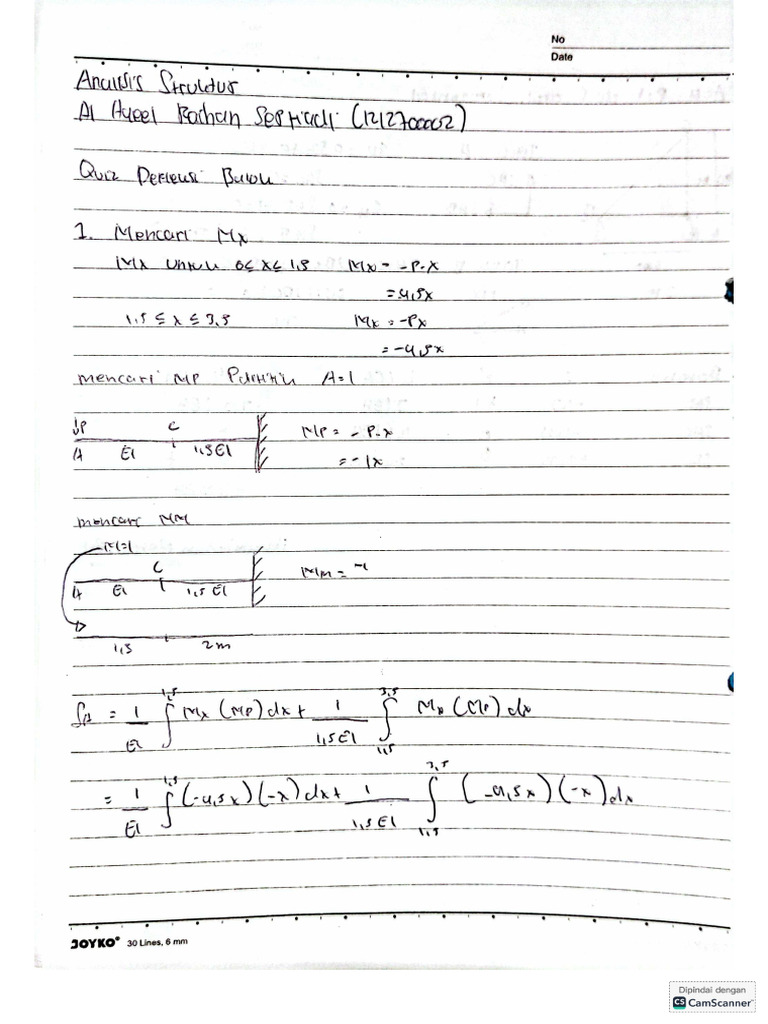 No
Date
Analisis Struktur
Al Aqeel Raihan Septriadi (1212700002)
Quiz Defleksi Balok
1. Mencari Mx
Mx untuk 0 ≤ x ≤ 1,5 Mx = -P.x
= 4,5x
1,5 ≤ x ≤ 3,5 Mx = -Px
= -4,5x
mencari MP A=1
↓P C MP = - P.x
A EI 1,5EI = -1x
mencari MM
M=1
C Mm = -1
A EI 1,5 EI
1,5 2m
δA = 1/EI ∫ 1,5 Mx (MP) dx + 1/1,5EI ∫ 1,5 3,5 Mx (MP) dx
= 1/EI ∫ 1,5 (-4,5x)(-x) dx + 1/1,5EI ∫ 1,5 3,5 (-4,5x)(-x) dx
JOYKO® 30 Lines, 6 mm
Dipindai dengan
CS CamScanner